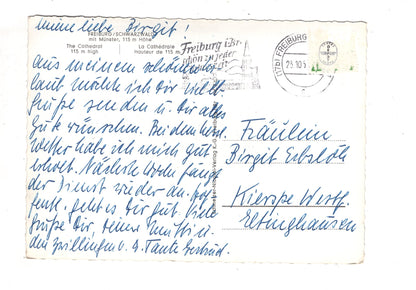 meine liebe Birgit!
FREIBURG/SCHWARZWALD
mit Münster, 115 m Höhe
The Cathedral
115 m high
La Cathédrale
Hauteur de 115 m
aus meinem schönen
laub möchte ich Dir
Grüße senden u. Dir alles
Gute wünschen. Bei dem
Wetter habe ich mich gut
erholt. Nächste Woche fängt
der Dienst wieder an.
geht es Dir gut. Viele
Grüße Dir, deiner Mutti u.
den Zwillingen v. d. Tante Gertrud.
Freiburg
schön zu jeder
(17b) FREIBURG
Fräulein
Birgit Erbslöh
Kierspe Westf.
Elbinghausen